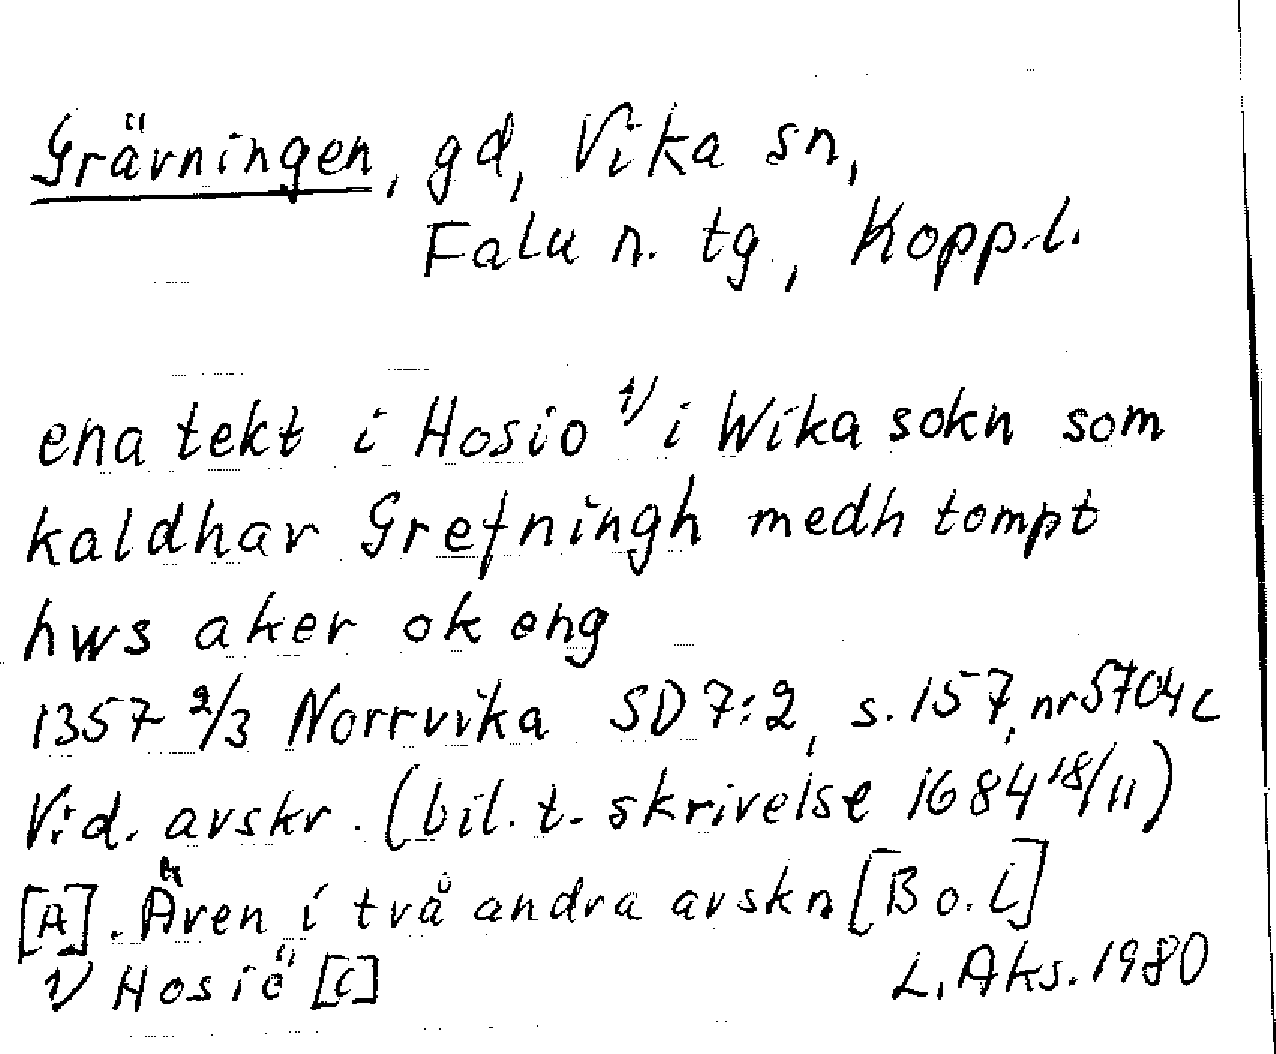 Grävningen, gd, Vika sn,
Falu n. tg, Kopp.l.
ena tekt i Hosio 1/ i Wika sokn som
kaldhar Grefningh medh tompt
hws aker ok eng
1357 2/3 Norrvika SD 7:2, s. 157, nr 5704 c
Vid. avskr. (bil. t. skrivelse 1684 18/11)
[A]. Även i två andra avskr [B o. C]
1/ Hosiö [C]
L. Aks. 1980